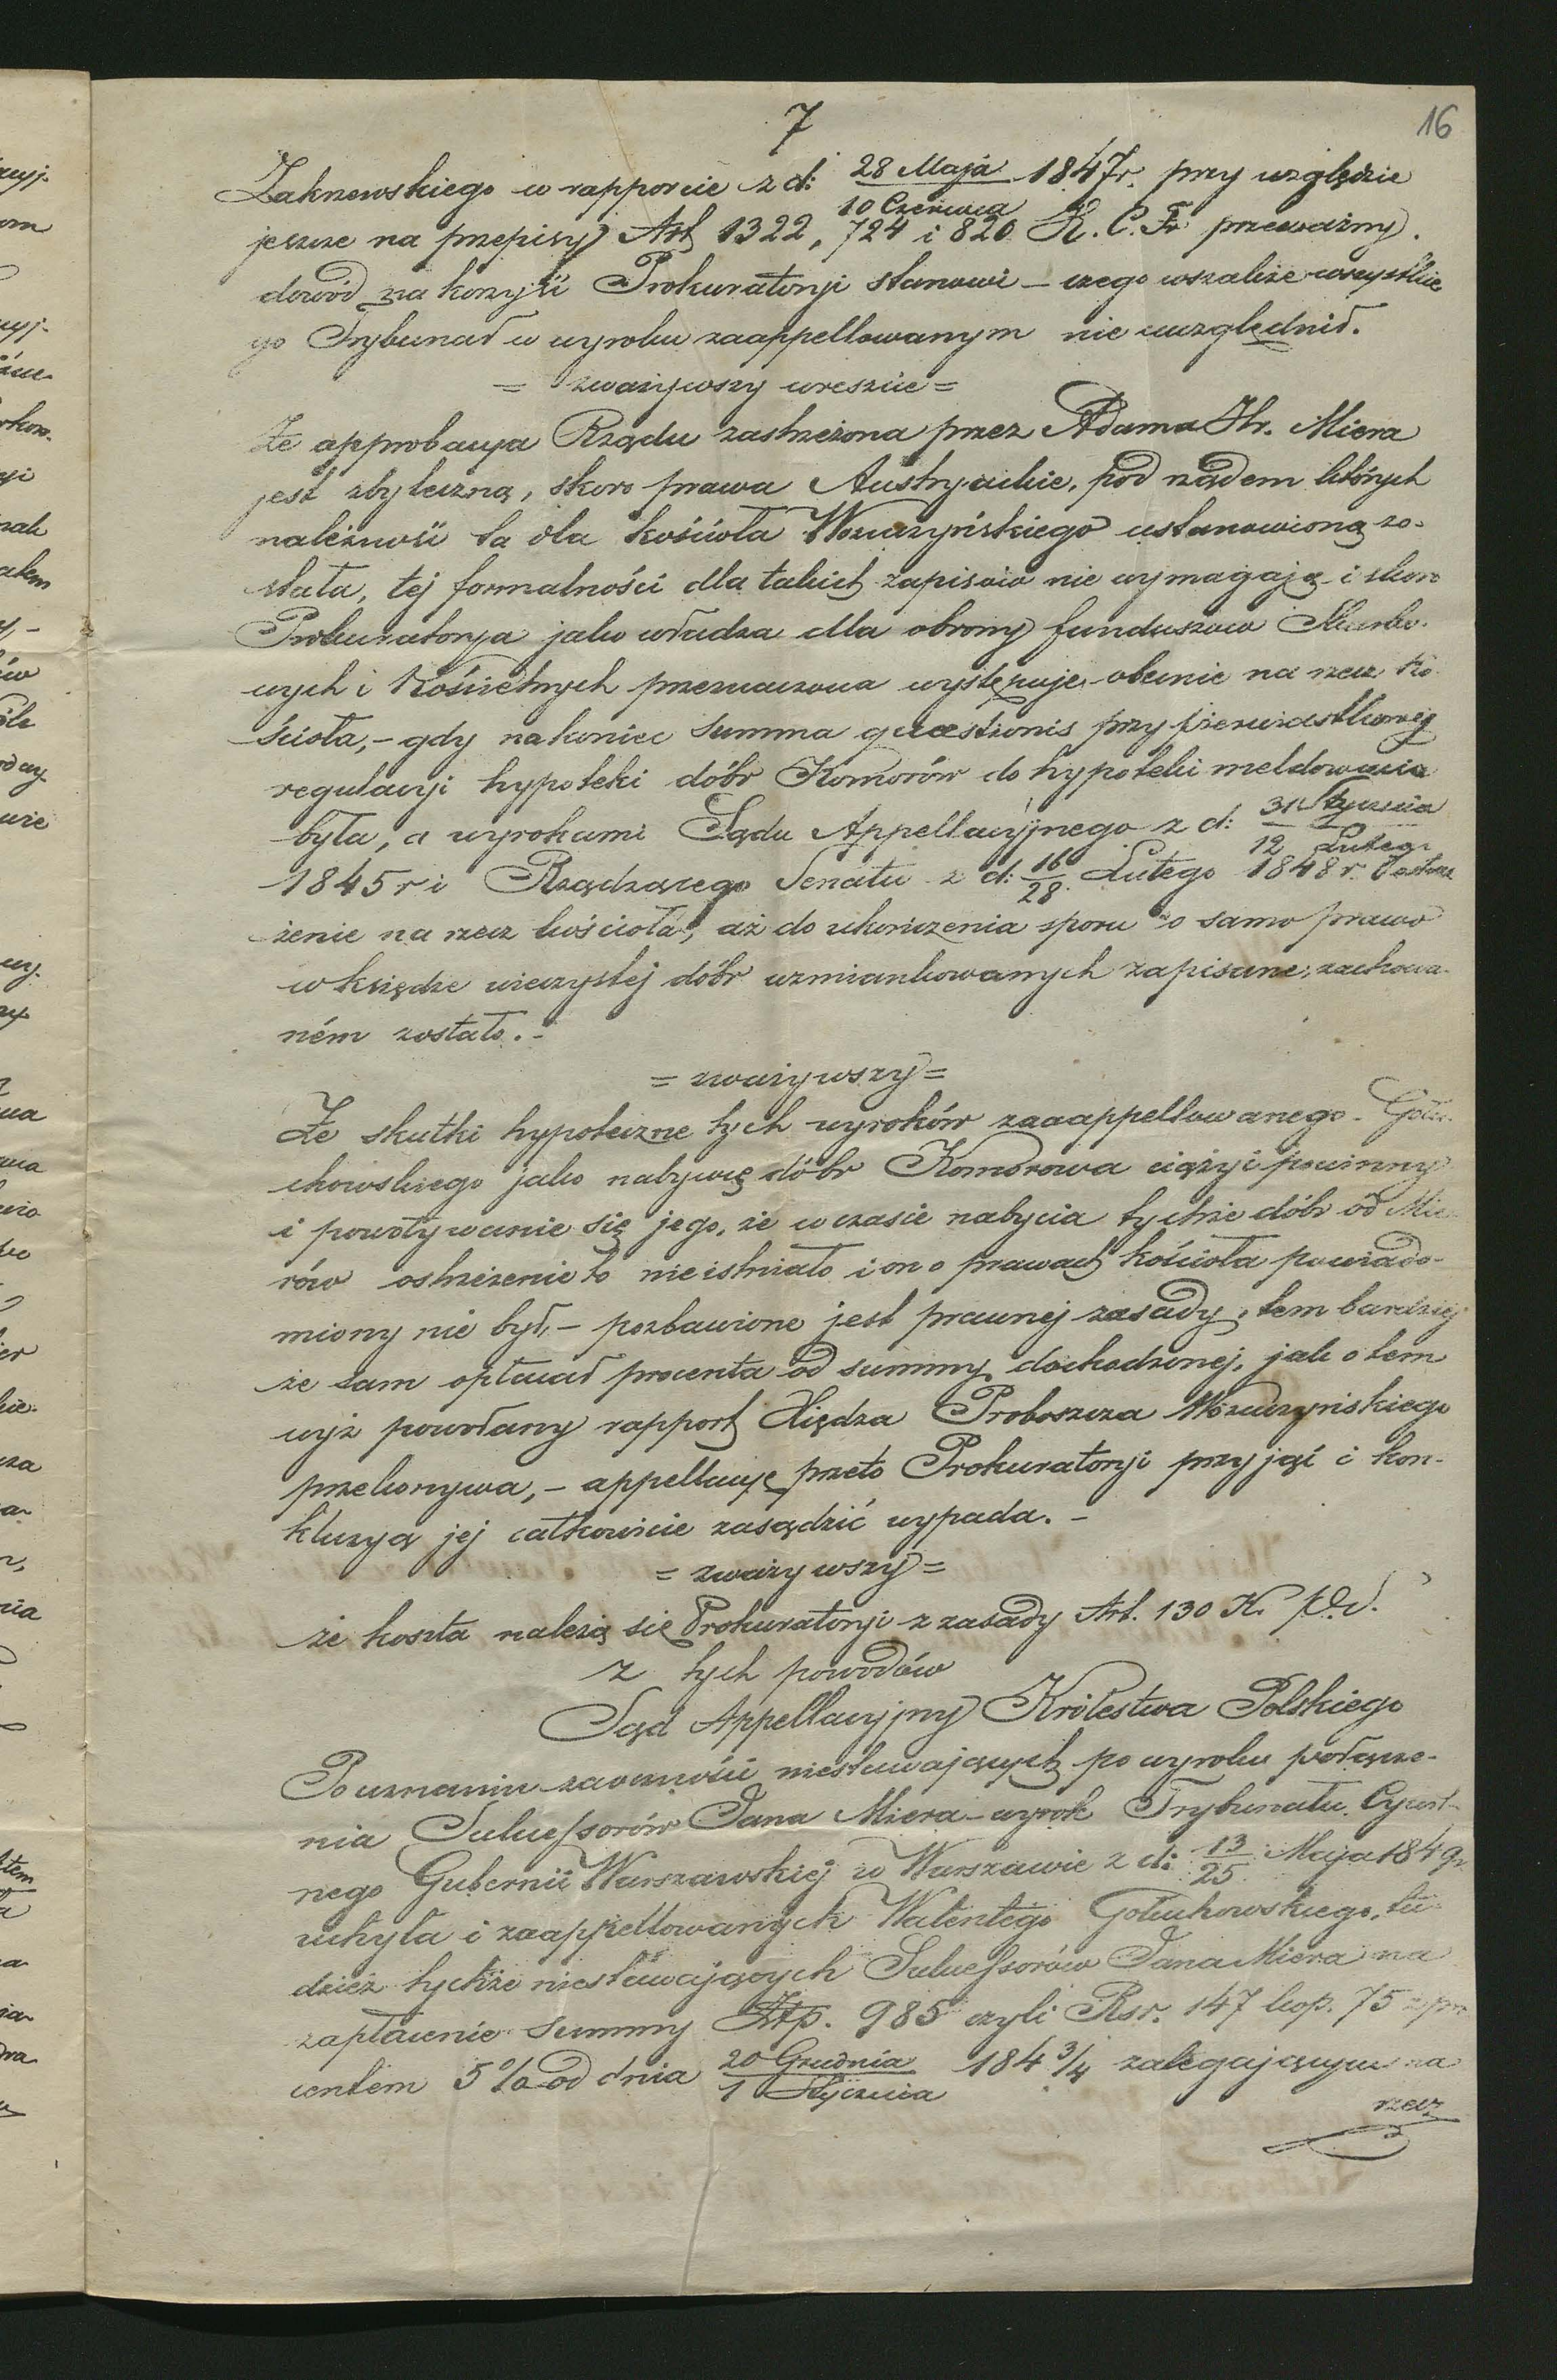 7
16
Zakrzewskiego w rapporcie z d: 28 Maja / 10 Czerwca 1847 r. przy względzie
jeszcze na przepisy Art 1322, 724 i 820 K. C. Fr przeważny
dowód na korzyść Prokuratorji stanowi – czego wszakże wszystkie
go Trybunał w wyroku zaappellowanym nie uwzględnił.
= zważywszy wreszcie =
Że approbacya Rządu zastrzeżona przez Adama Hr. Miera
jest zbyteczną, skoro prawa Austryackie, pod rządem których
należność ta dla kościoła Wozuczyńskiego ustanowioną zo-
stała, tej formalności dla takich zapisów nie wymagają i skoro
Prokuratorya jako władza dla obrony funduszów Skarbo-
wych i Kościelnych przeznaczona występuje obecnie na rzecz Ko-
ścioła, – gdy nakoniec summa quaestionis przy pierwiastkowej
regulacyi hypoteki dóbr Komorów do hypoteki meldowana
była, a wyrokami Sądu Appellacyjnego z d: 31 Stycznia / 12 Lutego
1845 r i Rządzącego Senatu z d: 16/28 Lutego 1848 r. Ostrze
żenie na rzecz kościoła, aż do ukończenia sporu o samo prawo
w księdze wieczystej dóbr wzmiankowanych zapisane, zachowa-
ném zostało. –
= zważywszy =
Że skutki hypoteczne tych wyroków zaaappellowanego Gołu-
chowskiego jako nabywcę dóbr Komorowa ciążyć powinny
i powoływanie się jego, że w czasie nabycia tychże dóbr od Mie
rów ostrzeżenie to nie istniało i on o prawach kościoła powiado-
miony nie był, – pozbawione jest prawnej zasady, tem bardziej
że sam opłacał procenta od summy dochodzonej, jak o tem
wyż powołany rapport Xiędza Proboszcza Wozuczyńskiego
przekonywa, – appellacyę przeto Prokuratorji przyjąć i kon-
kluzyą jej całkowicie zasądzić wypada. –
= zważywszy =
że koszta należą się Prokuratorji z zasady Art. 130 K. P. S.
z tych powodów
Sąd Appellacyjny Królestwa Polskiego
Po uznaniu zaoczności niestawających po wyroku połącze-
nia Sukcessorów Jana Miera – wyrok Trybunału Cywil-
nego Gubernii Warszawskiej w Warszawie z d: 13/25 Maja 1849 r.
uchyla i zaappellowanych Walentego Gołuchowskiego, tu-
dzież tychże niestawających Sukcessorów Jana Miera na
zapłacenie summy Złp. 985 czyli Rsr. 147 kop. 75 z pro
centem 5 % od dnia 20 Grudnia / 1 Stycznia 184 3/4 zalegającym na
rzecz